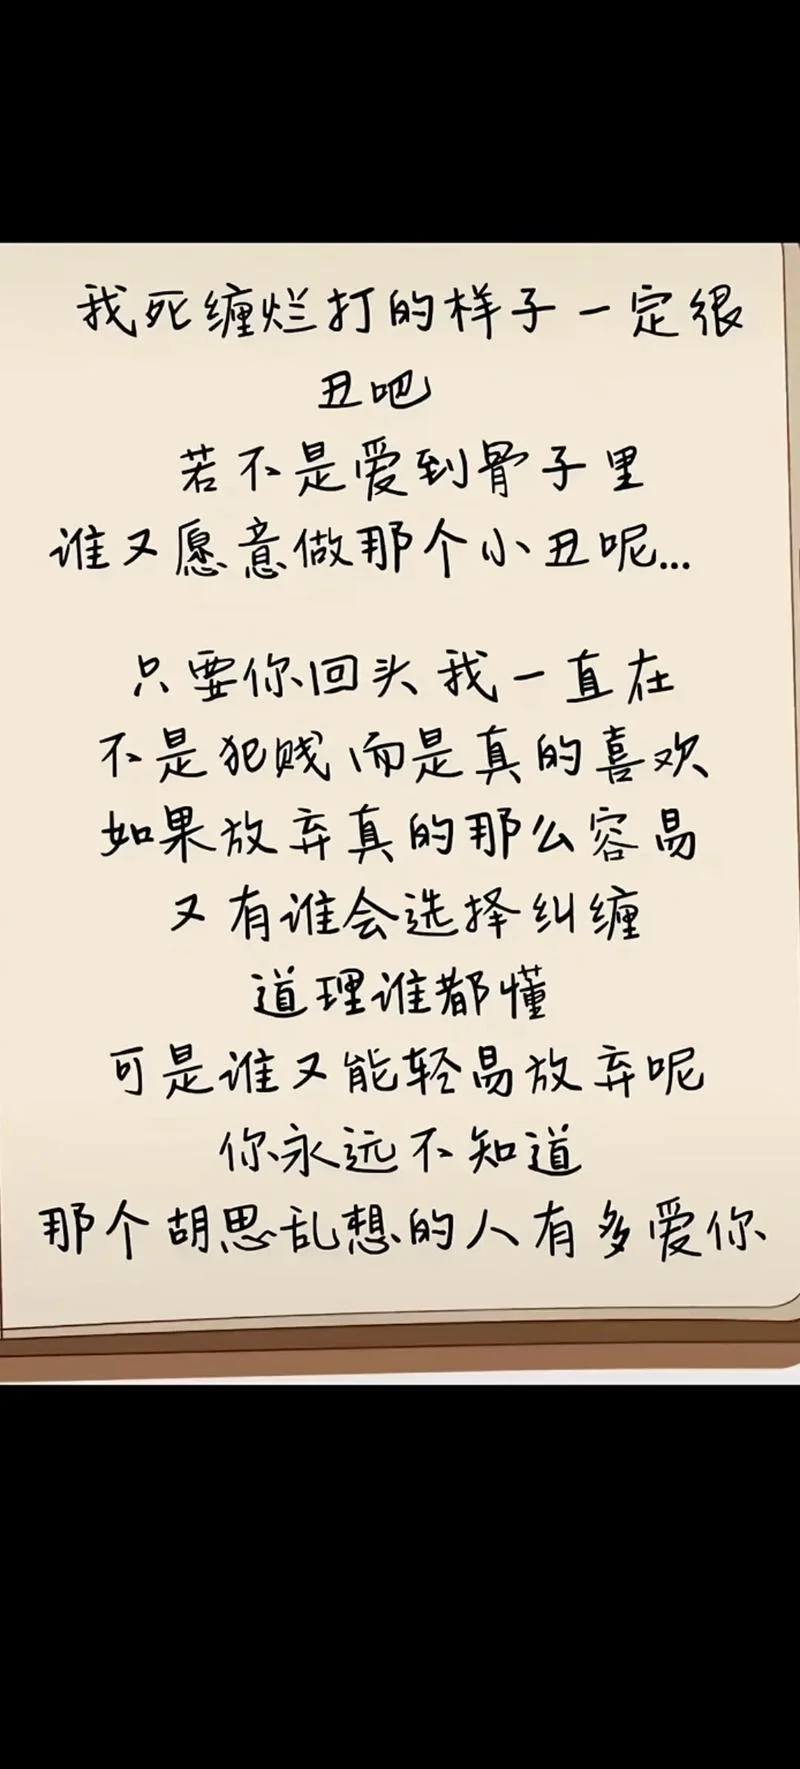 我死缠烂打的样子一定很
丑吧
若不是爱到骨子里
谁又愿意做那个小丑呢...
只要你回头我一直在
不是犯贱而是真的喜欢
如果放弃真的那么容易
又有谁会选择纠缠
道理谁都懂
可是谁又能轻易放弃呢
你永远不知道
那个胡思乱想的人有多爱你